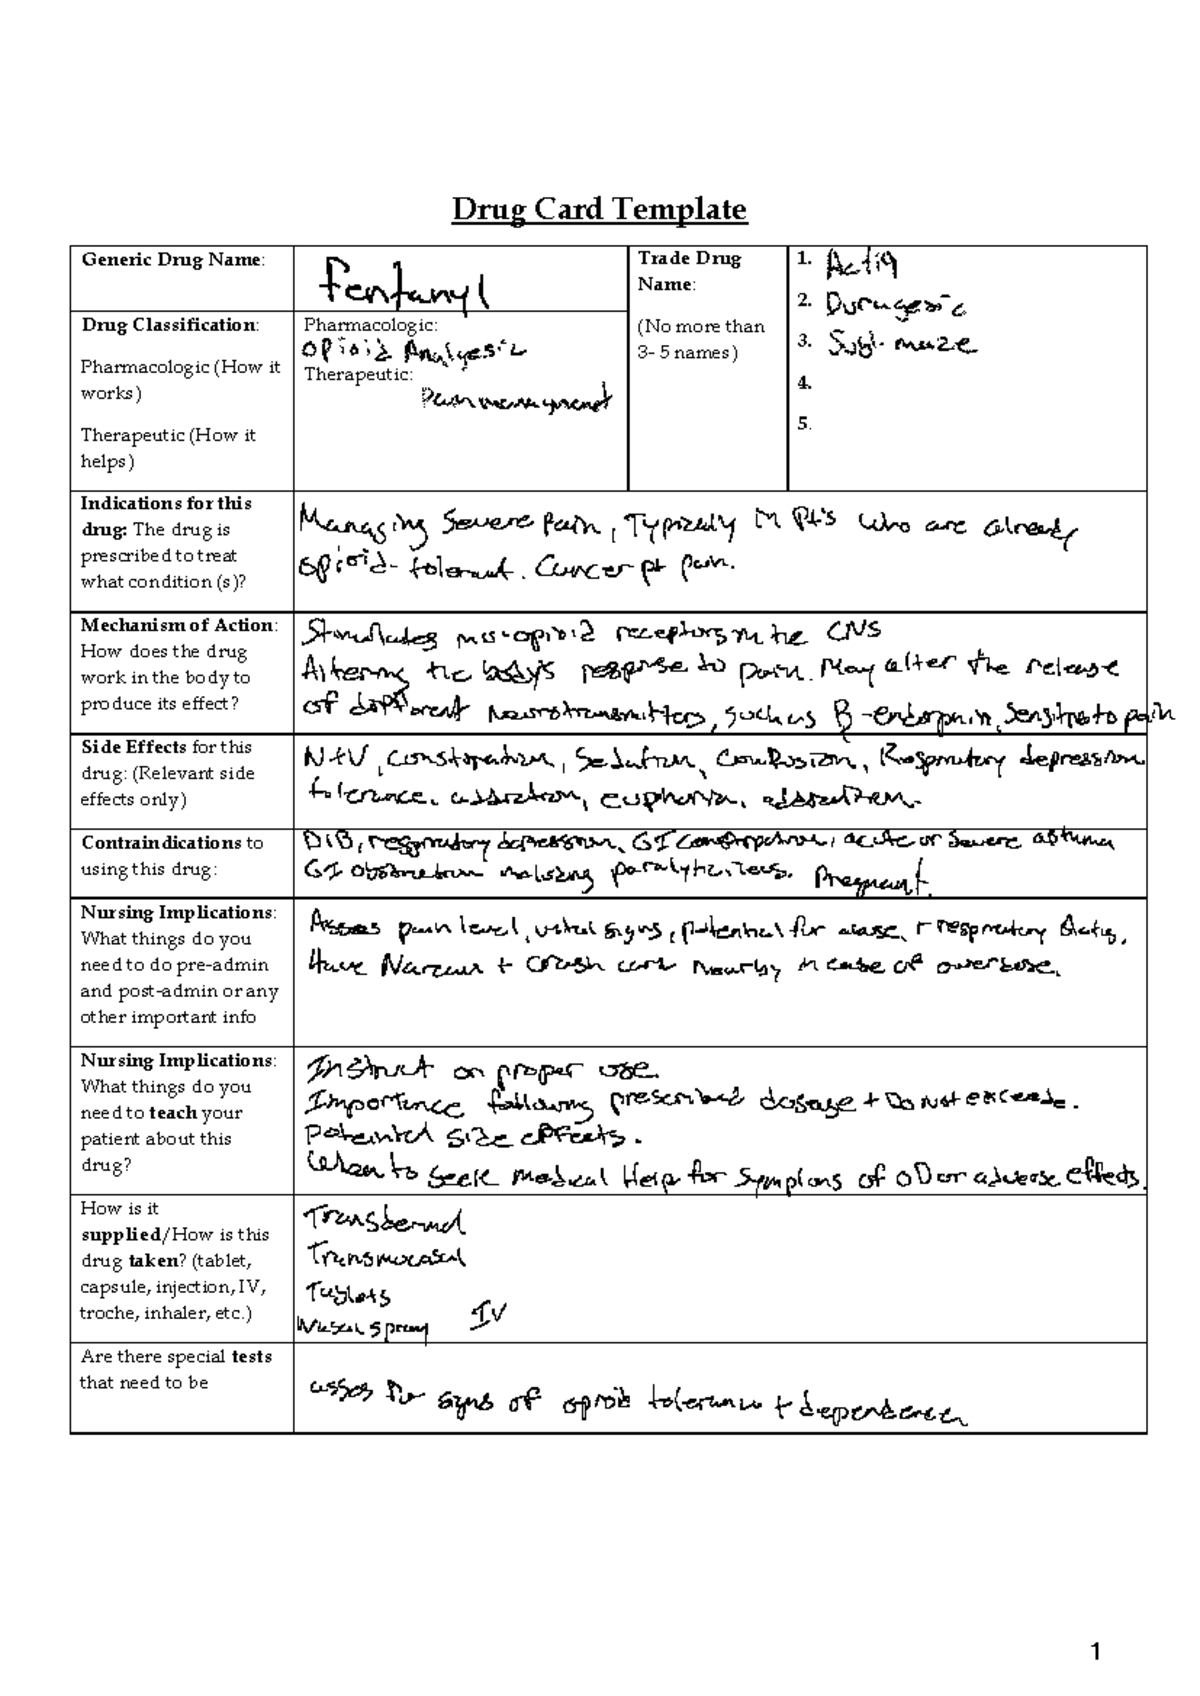 Drug Card Template
Generic Drug Name:
Fentanyl
Trade Drug
Name:
(No more than
3- 5 names)
1. Actiq
2. Duragesic
3. Sublimaze
4.
5.
Drug Classification:
Pharmacologic (How it
works)
Therapeutic (How it
helps)
Pharmacologic:
Opioid Analgesic
Therapeutic:
Pain management
Indications for this
drug: The drug is
prescribed to treat
what condition (s)?
Managing Severe Pain, Typically in Pt's who are already
opioid-tolerant. Cancer pt pain.
Mechanism of Action:
How does the drug
work in the body to
produce its effect?
Stimulates mu-opioid receptors in the CNS
Altering the body's response to pain. May alter the release
of different Neurotransmitters, such as B-endorphin, Sensitive to pain
Side Effects for this
drug: (Relevant side
effects only)
N+V, Constipation, Sedation, Confusion, Respiratory depression
tolerance, addiction, euphoria,
Contraindications to
using this drug:
DIB, respiratory depression, GI constipation, acute or severe asthma
GI obstruction including paralytic ileus. Pregnant.
Nursing Implications:
What things do you
need to do pre-admin
and post-admin or any
other important info
Assess pain level, vital signs, potential for abuse, + respiratory status,
Have Narcan + Crash cart nearby in case of overdose.
Nursing Implications:
What things do you
need to teach your
patient about this
drug?
Instruct on proper use.
Importance following prescribed dosage + Do Not exceede.
Potential side effects.
When to Seek Medical Help for Symptoms of OD or adverse effects.
How is it
supplied/How is this
drug taken? (tablet,
capsule, injection, IV,
troche, inhaler, etc.)
Transdermal
Transmucosal
Tablets
Nasal spray IV
Are there special tests
that need to be
asses for signs of opioid tolerance + dependence
1